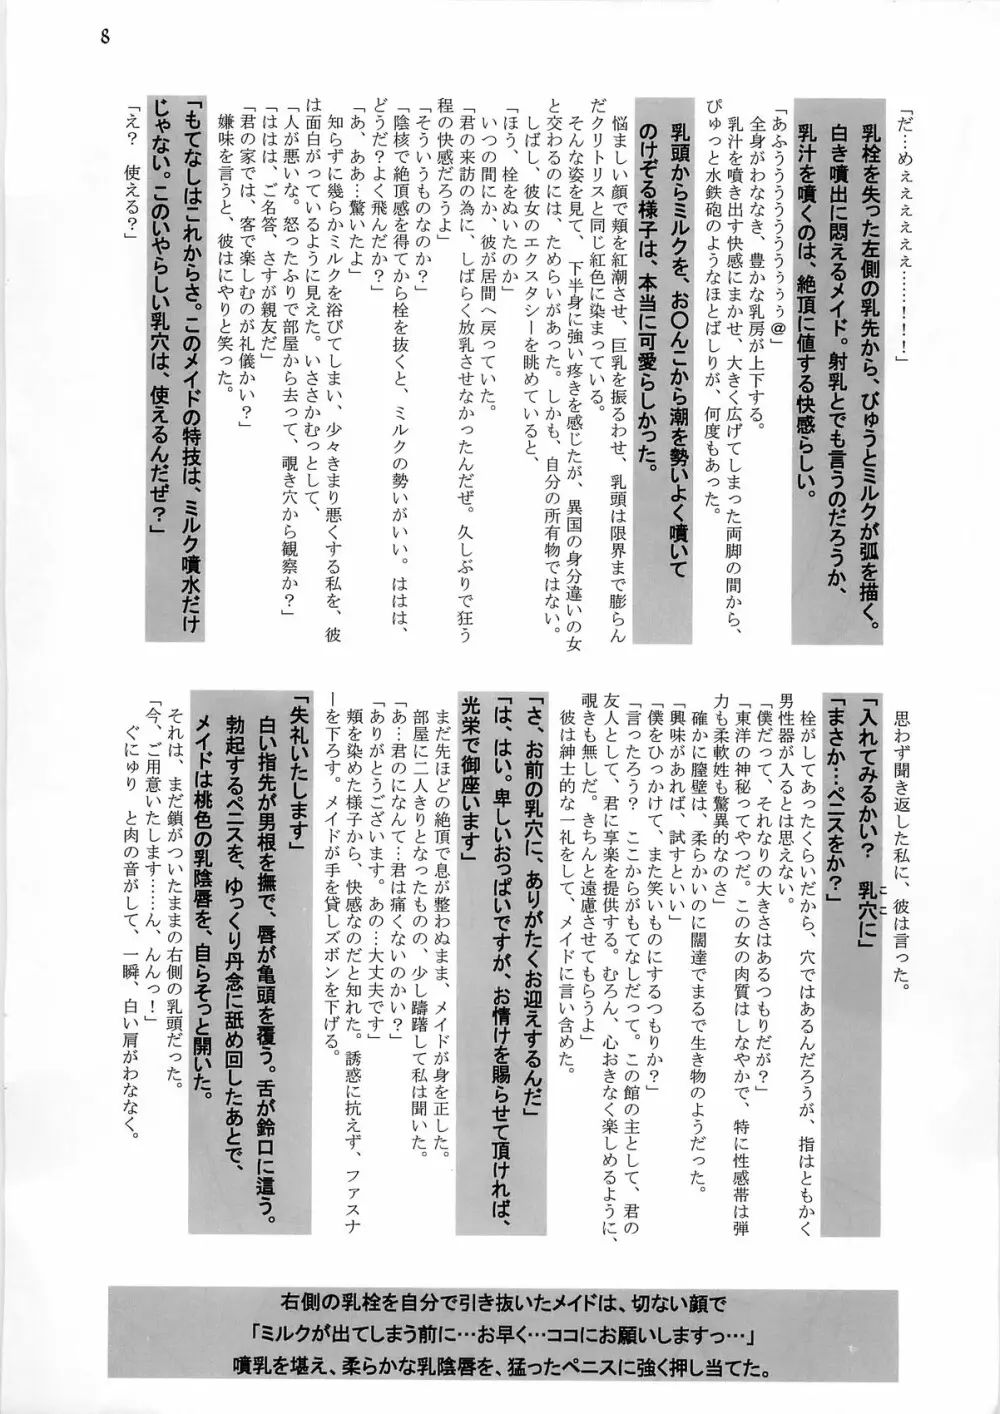 8
「だ…めぇぇぇぇぇぇ………!!!」
乳栓を失った左側の乳先から、びゅうとミルクが弧を描く。
白き噴出に悶えるメイド。射乳とでも言うのだろうか、
乳汁を噴くのは、絶頂に値する快感らしい。
「あふううううううぅぅぅ@」
全身がわななき、豊かな乳房が上下する。
乳汁を噴き出す快感にまかせ、大きく広げてしまった両脚の間から、
ぴゅっと水鉄砲のようなほとばしりが、何度もあった。
乳頭からミルクを、お〇んこから潮を勢いよく噴いて
のけぞる様子は、本当に可愛らしかった。
悩ましい顔で頬を紅潮させ、巨乳を振るわせ、乳頭は限界まで膨らん
だクリトリスと同じ紅色に染まっている。
そんな姿を見て、下半身に強い疼きを感じたが、異国の身分違いの女
と交わるのには、ためらいがあった。しかも、自分の所有物ではない。
しばし、彼女のエクスタシーを眺めていると、
「ほう、栓をぬいたのか」
いつの間にか、彼が居間へ戻っていた。
「君の来訪の為に、しばらく放乳させなかったんだぜ。久しぶりで狂う
程の快感だろうよ」
「そういうものなのか?」
「陰核で絶頂感を得てから栓を抜くと、ミルクの勢いがいい。ははは、
どうだ?よく飛んだか?」
「あ、ああ…驚いたよ」
知らずに幾らかミルクを浴びてしまい、少々きまり悪くする私を、彼
は面白がっているように見えた。いささかむっとして、
「人が悪いな。怒ったふりで部屋から去って、覗き穴から観察か?」
「ははは、ご名答、さすが親友だ」
「君の家では、客で楽しむのが礼儀かい?」
嫌味を言うと、彼はにやりと笑った。
「もてなしはこれからさ。このメイドの特技は、ミルク噴水だけ
じゃない。このいやらしい乳穴は、使えるんだぜ?」
「え? 使える?」
思わず聞き返した私に、彼は言った。
「入れてみるかい? 乳穴に」
ここ
「まさか…ペニスをか?」
栓がしてあったくらいだから、穴ではあるんだろうが、指はともかく
男性器が入るとは思えない。
「僕だって、それなりの大きさはあるつもりだが?」
「東洋の神秘ってやつだ。この女の肉質はしなやかで、特に性感帯は弾
力も柔軟姓も驚異的なのさ」
確かに膣壁は、柔らかいのに闊達でまるで生き物のようだった。
「興味があれば、試すといい」
「僕をひっかけて、また笑いものにするつもりか?」
「言ったろう? ここからがもてなしだって。この館の主として、君の
友人として、君に享楽を提供する。むろん、心おきなく楽しめるように、
覗きも無しだ。きちんと遠慮させてもらうよ」
彼は紳士的な一礼をして、メイドに言い含めた。
「さ、お前の乳穴に、ありがたくお迎えするんだ」
「は、はい。卑しいおっぱいですが、お情けを賜らせて頂ければ、
光栄で御座います」
まだ先ほどの絶頂で息が整わぬまま、メイドが身を正した。
部屋に二人きりとなったものの、少し躊躇して私は聞いた。
「あ…君のになんて…君は痛くないのかい?」
「ありがとうございます。あの…大丈夫です」
頬を染めた様子から、快感なのだと知れた。誘惑に抗えず、ファスナ
ーを下ろす。メイドが手を貸しズボンを下げる。
「失礼いたします」
白い指先が男根を撫で、唇が亀頭を覆う。舌が鈴口に這う。
勃起するペニスを、ゆっくり丹念に舐め回したあとで、
メイドは桃色の乳陰唇を、自らそっと開いた。
それは、まだ鎖がついたままの右側の乳頭だった。
「今、ご用意いたします……ん、んんっ!」
ぐにゅり と肉の音がして、一瞬、白い肩がわななく。
右側の乳栓を自分で引き抜いたメイドは、切ない顔で
「ミルクが出てしまう前に…お早く…ココにお願いしますっ…」
噴乳を堪え、柔らかな乳陰唇を、猛ったペニスに強く押し当てた。